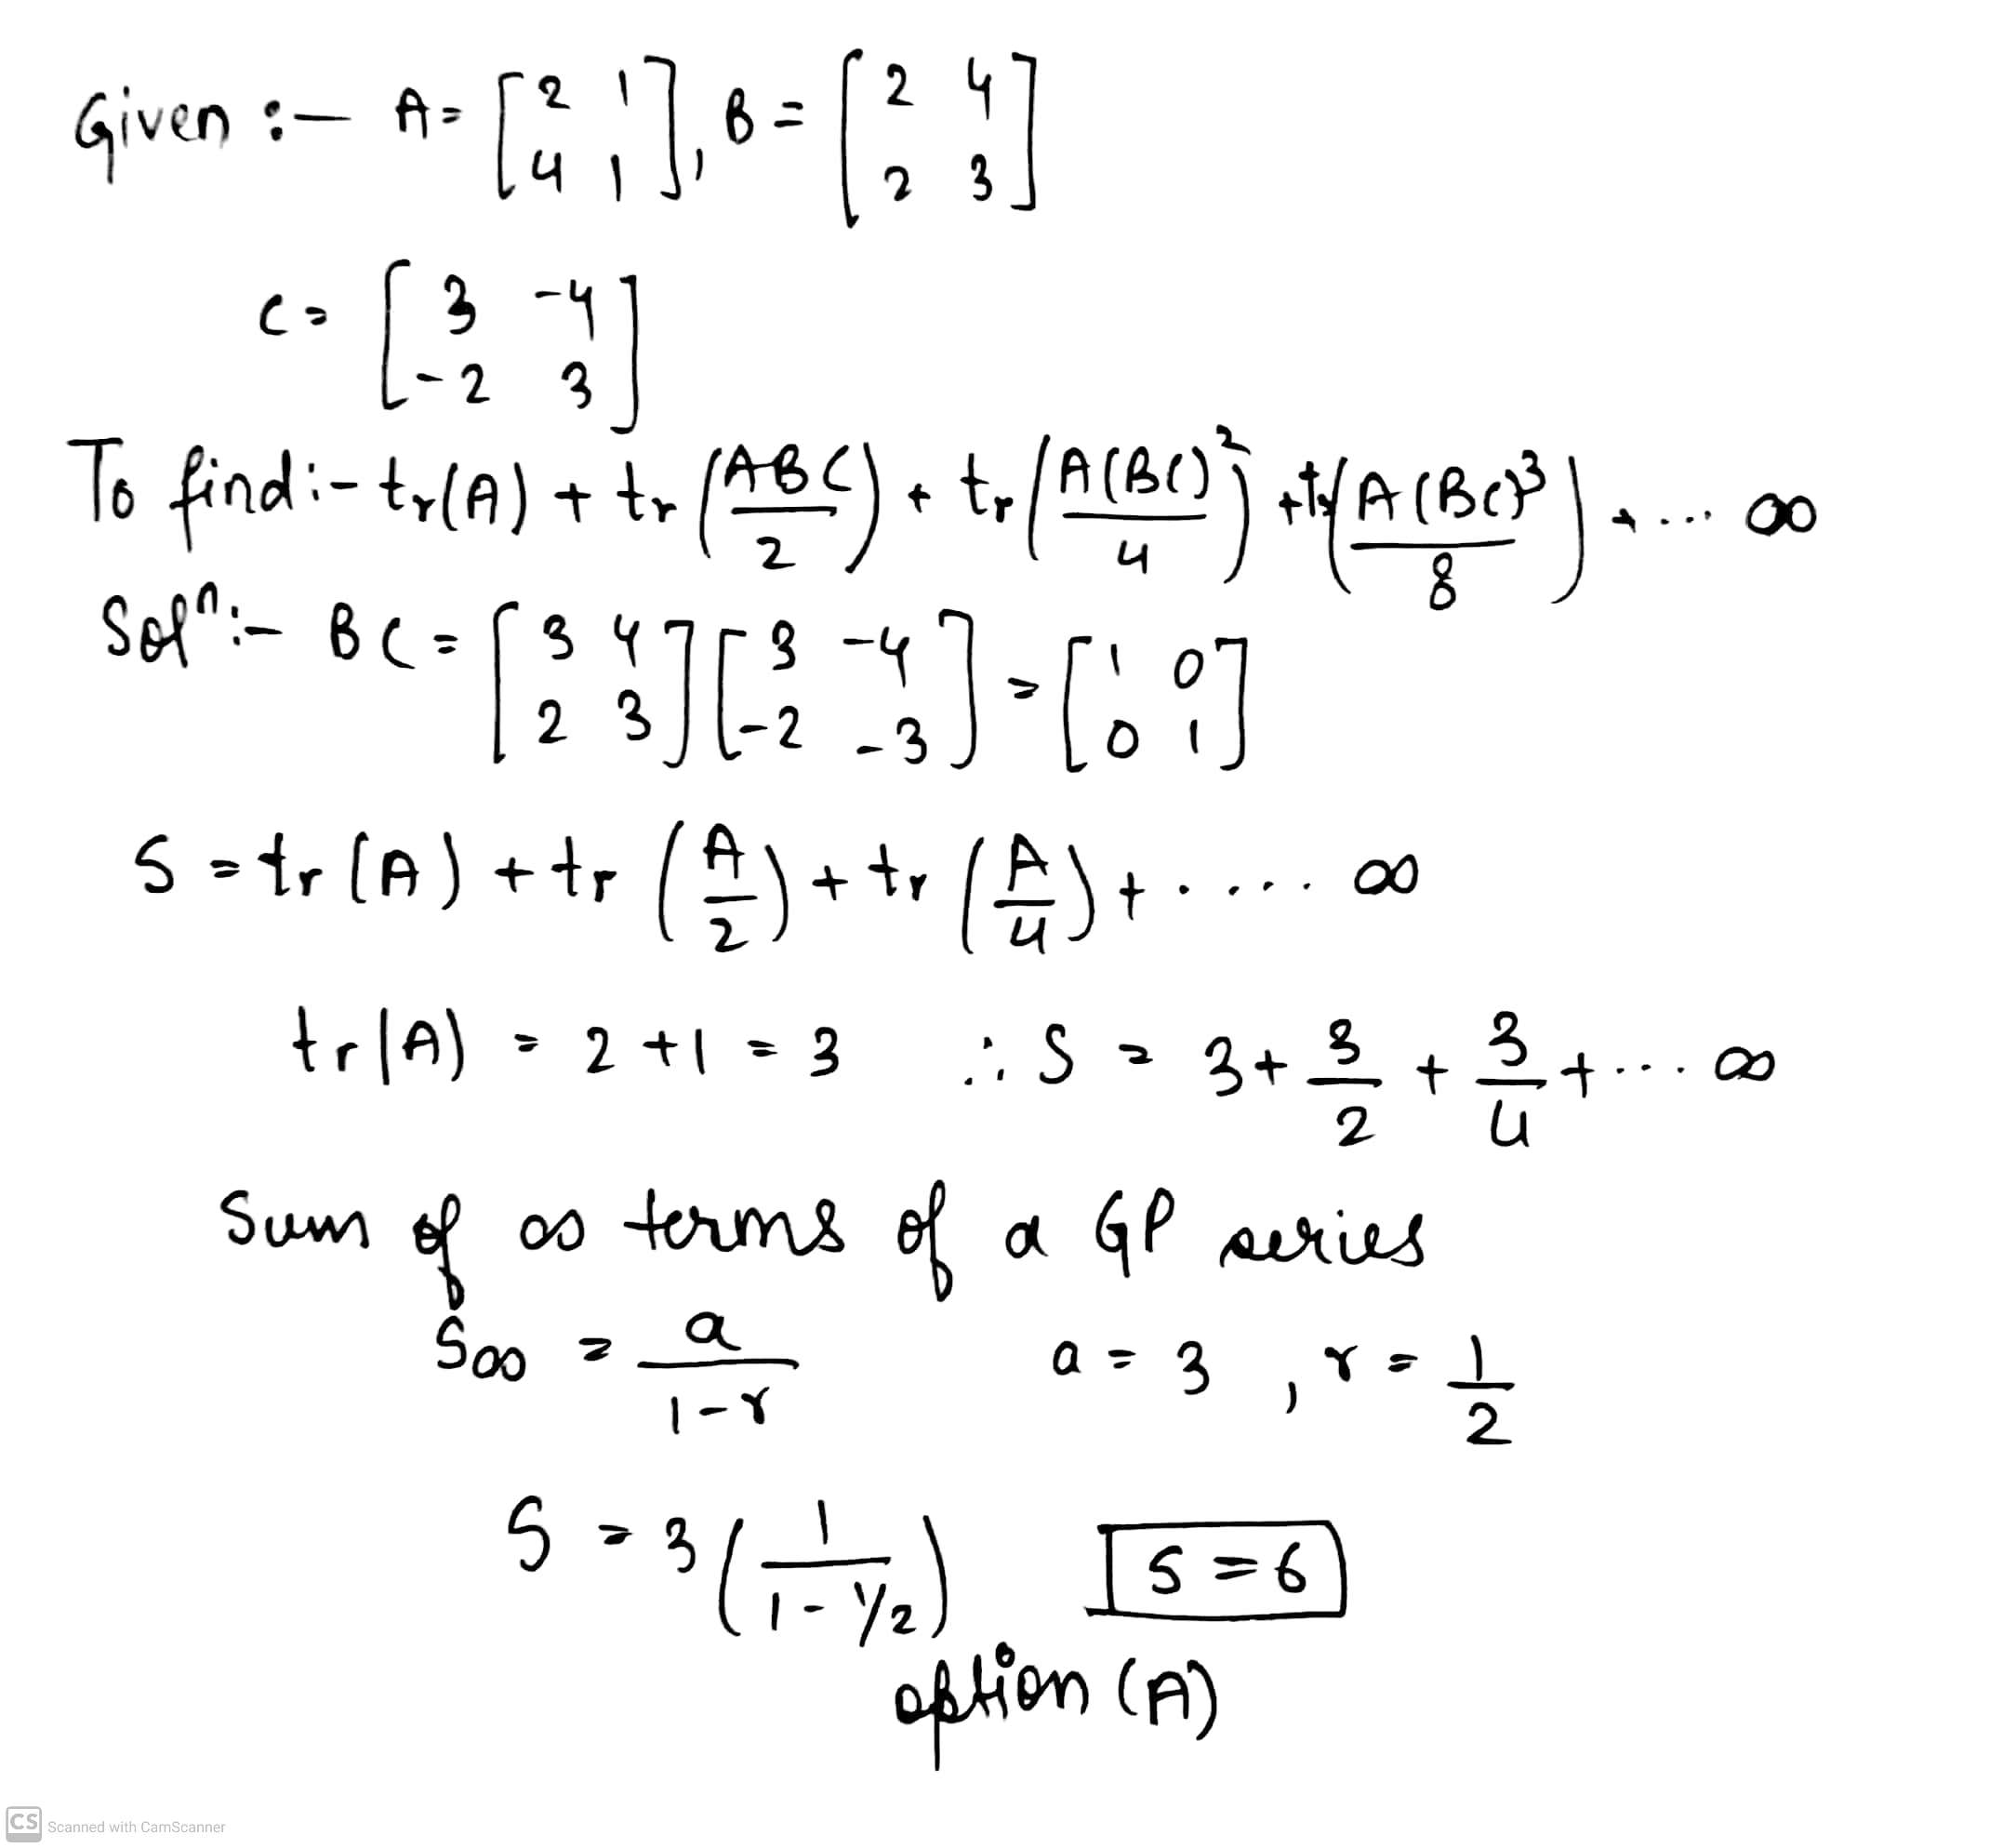 Given :- A = [2 1 4 1], B = [2 4 2 3]
C = [3 -4 -2 3]
To find :- tr(A) + tr(ABC/2) + tr(A(BC)²/4) + tr(A(BC)³/8) + ... ∞
Solⁿ :- BC = [3 4 2 3] [3 -4 -2 -3] = [1 0 0 1]
S = tr(A) + tr(A/2) + tr(A/4) + ..... ∞
tr(A) = 2 + 1 = 3 ∴ S = 3 + 3/2 + 3/4 + .... ∞
Sum of ∞ terms of a GP series
S∞ = a/1-r a = 3 , r = 1/2
S = 3(1/1-1/2) S = 6
option (A)
CS Scanned with CamScanner